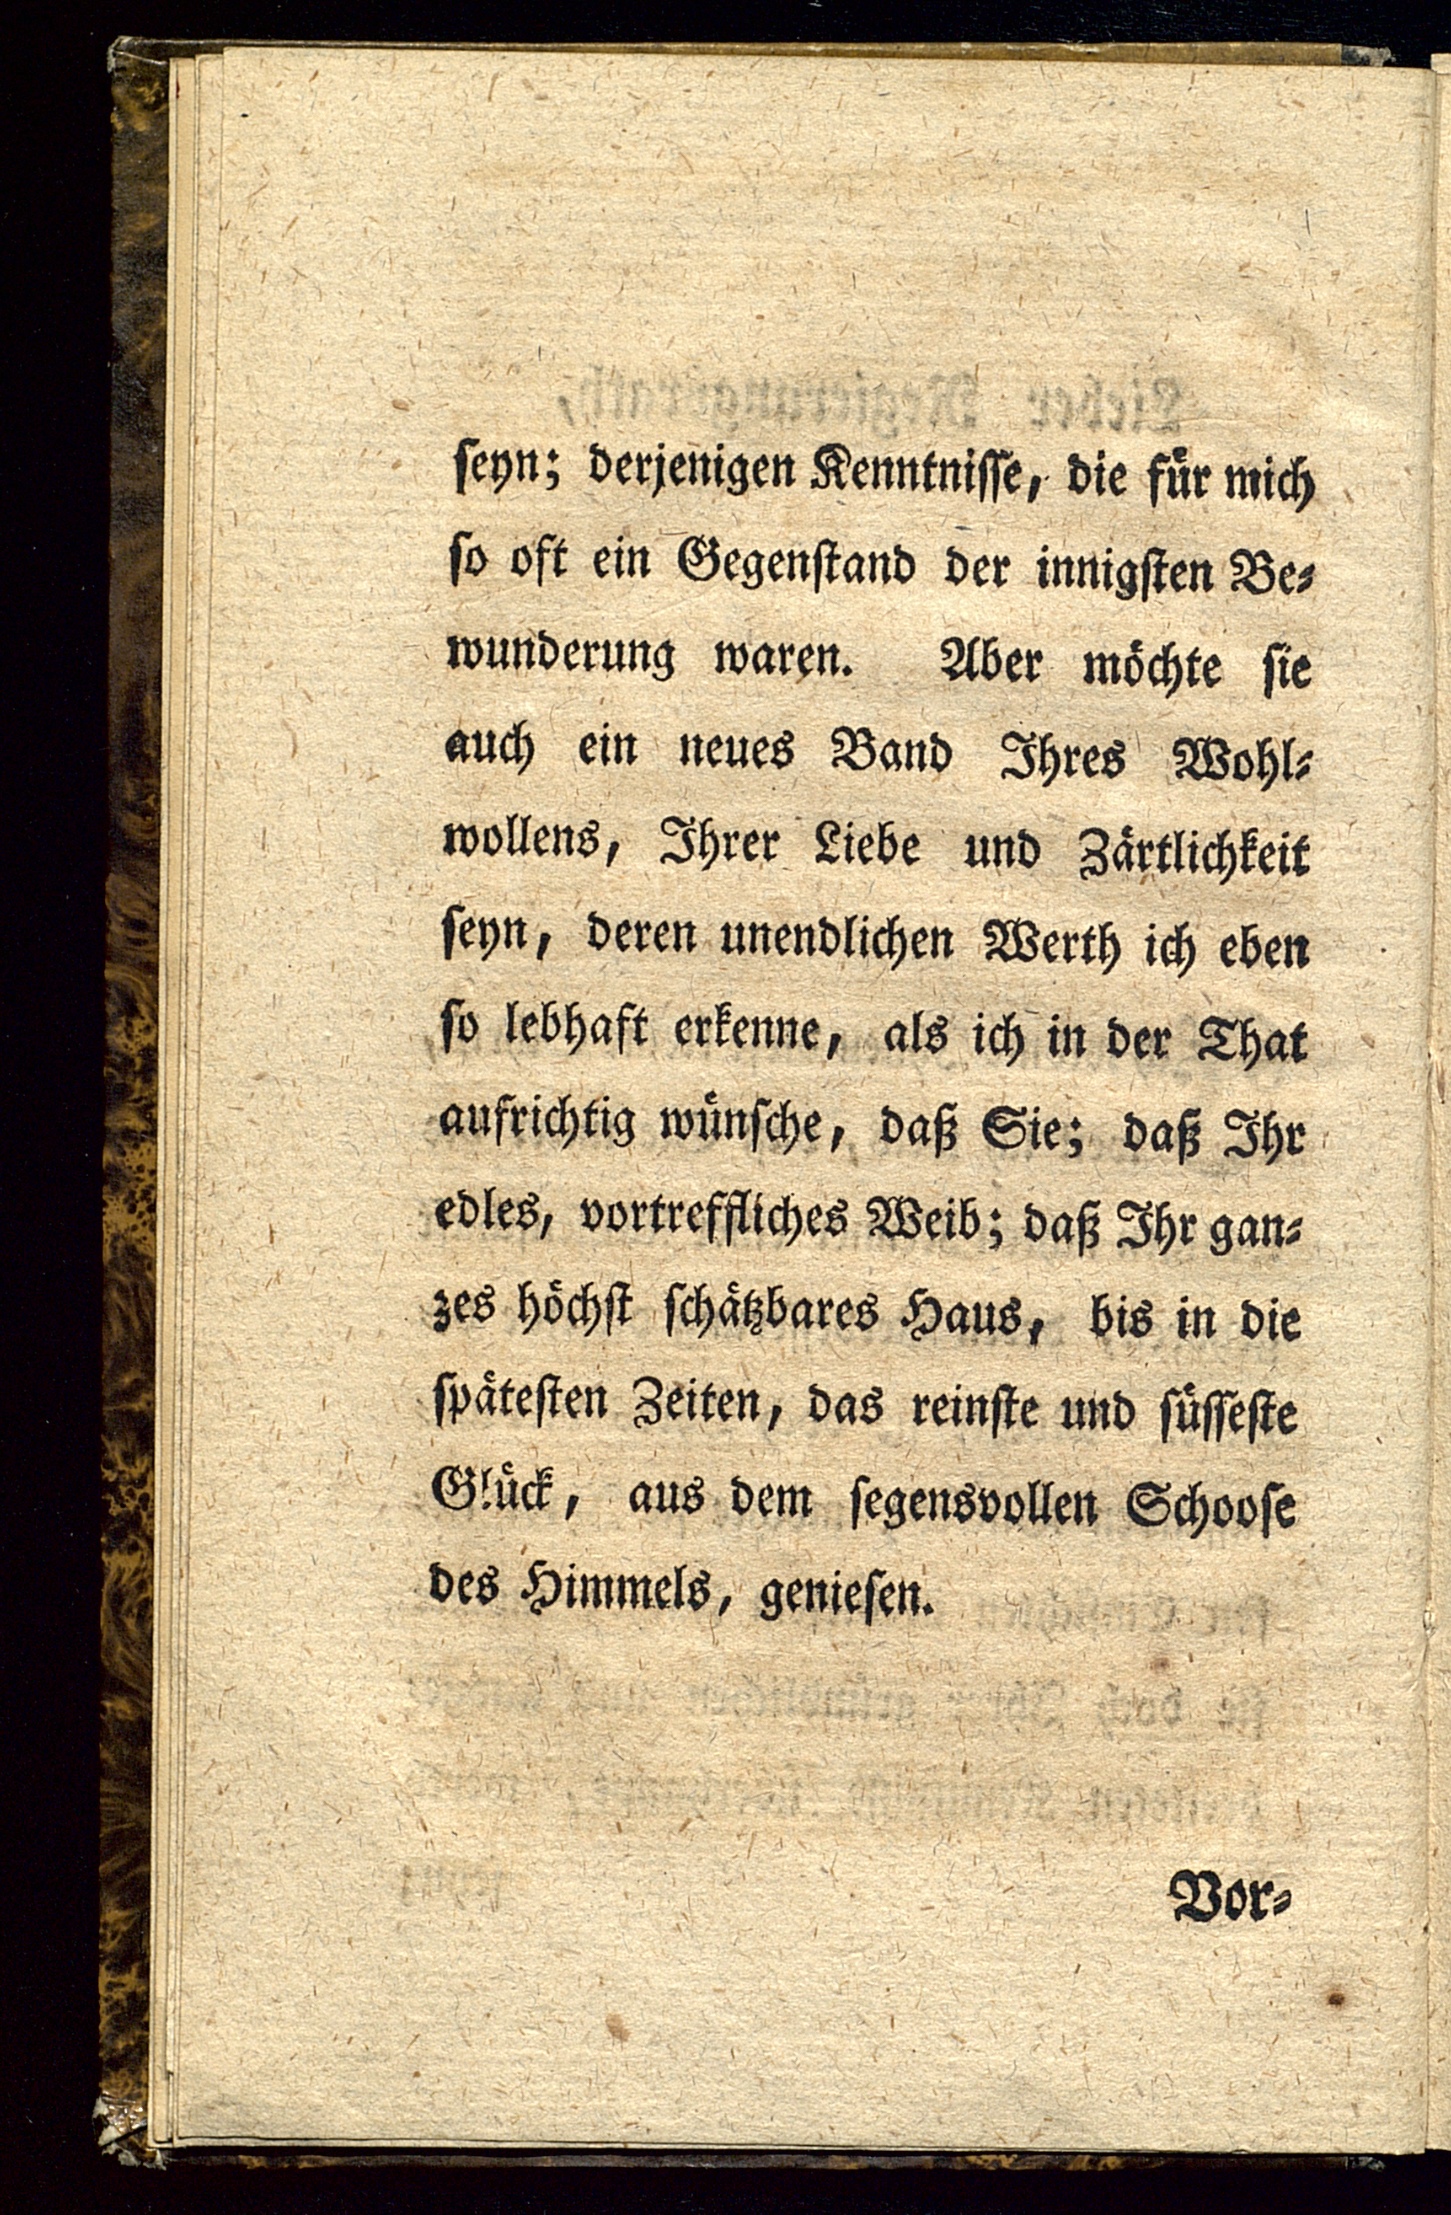 ſeyn; derjenigen Kenntniſſe, die für mich
ſo oft ein Gegenſtand der innigſten Be⸗
wunderung waren. Aber möchte ſie
auch ein neues Band Ihres Wohl⸗
wollens, Ihrer Liebe und Zärtlichkeit
ſeyn, deren unendlichen Werth ich eben
ſo lebhaft erkenne, als ich in der That
aufrichtig wünſche, daß Sie; daß Ihr
edles, vortreffliches Weib; daß Ihr gan⸗
zes höchſt ſchätzbares Haus, bis in die
ſpäteſten Zeiten, das reinſte und ſüſſeſte
Glück, aus dem ſegensvollen Schooſe
des Himmels, genieſen.
Vor⸗